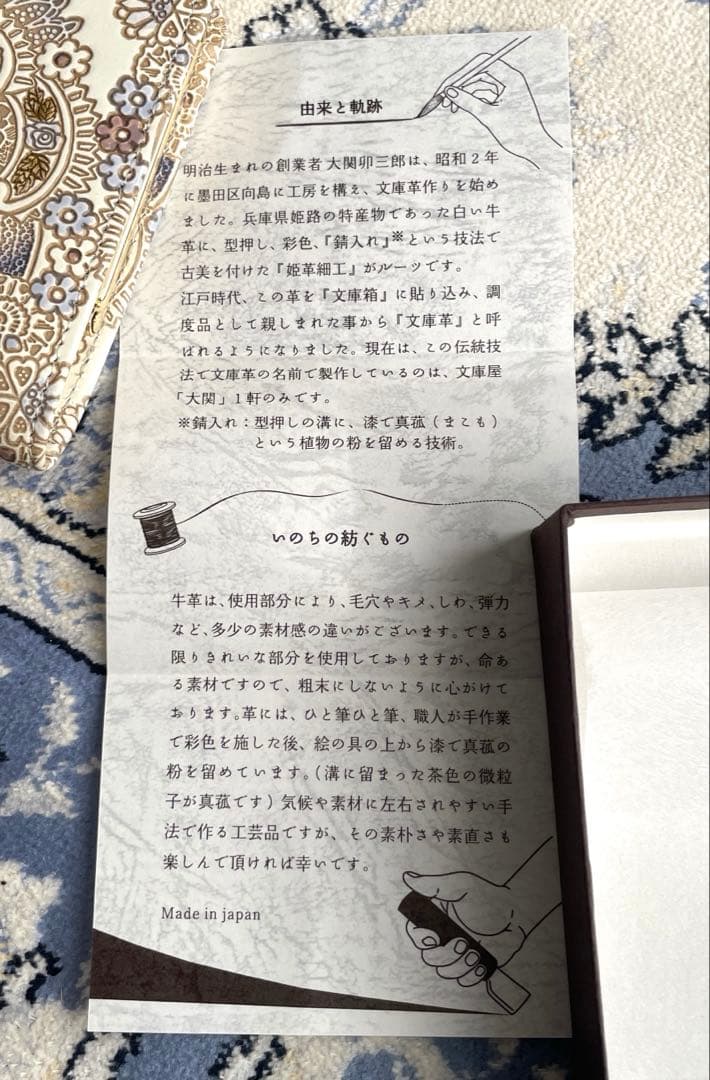 由来と軌跡
明治生まれの創業者 大関卯三郎は、昭和2年
に墨田区向島に工房を構え、文庫革作りを始め
ました。兵庫県姫路の特産物であった白い牛
革に、型押し、彩色、『錆入れ』※という技法で
古美を付けた『姫革細工』がルーツです。
江戸時代、この革を『文庫箱』に貼り込み、調
度品として親しまれた事から『文庫革』と呼
ばれるようになりました。現在は、この伝統技
法で文庫革の名前で製作しているのは、文庫屋
「大関」1軒のみです。
※錆入れ：型押しの溝に、漆で真菰（まこも）
という植物の粉を留める技術。
いのちの紡ぐもの
牛革は、使用部分により、毛穴やキメ、しわ、弾力
など、多少の素材感の違いがございます。できる
限りきれいな部分を使用しておりますが、命あ
る素材ですので、粗末にしないように心がけて
おります。革には、ひと筆ひと筆、職人が手作業
で彩色を施した後、絵の具の上から漆で真菰の
粉を留めています。（溝に留まった茶色の微粒
子が真菰です）気候や素材に左右されやすい手
法で作る工芸品ですが、その素朴さや素直さも
楽しんで頂ければ幸いです。
Made in japan